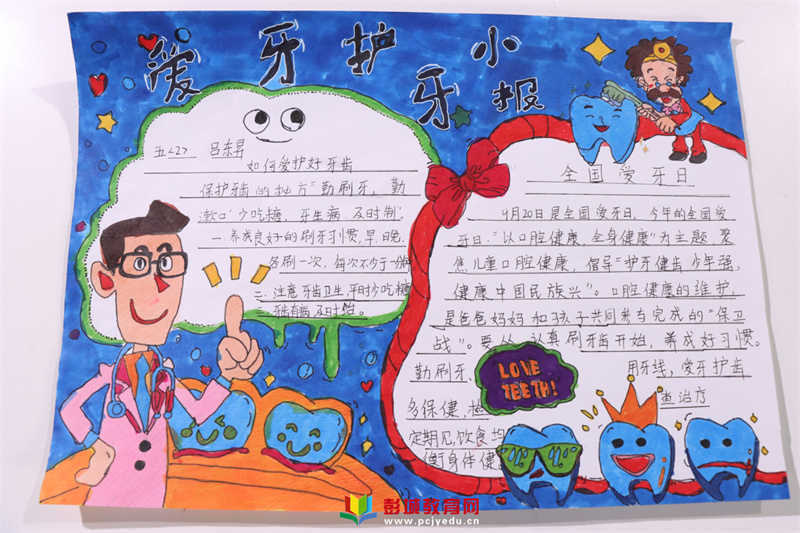 爱牙护牙小报
五<2> 吕东昇
如何爱护好牙齿
保护牙齿的秘方"勤刷牙,勤
漱口,少吃糖,牙生病,及时制"。
一.养成良好的刷牙习惯,早、晚
各刷一次,每次不少于一分钟
二、注意牙齿卫生,平时少吃糖
三.牙齿有病及时治。
全国爱牙日
9月20日是全国爱牙日,今年的全国爱
牙日:"以口腔健康,全身健康"为主题,聚
焦儿童口腔健康,倡导"护牙健齿少年强,
健康中国民族兴"。口腔健康的维护,
是爸爸妈妈和孩子共同参与完成的"保卫
战"。要从认真刷牙齿开始,养成好习惯。
勤刷牙、用牙线,爱牙护齿
多保健,治疗
定期见,饮食均
衡身体健
LOVE
TEETH!
彭城教育网
www.pcjyedu.cn